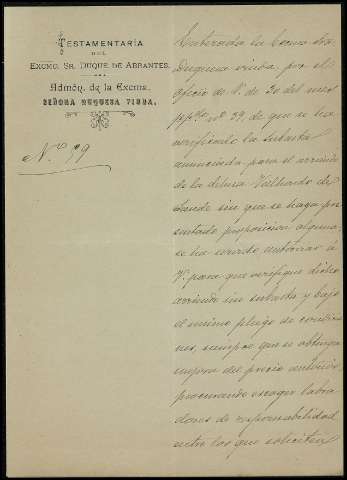 TESTAMENTARÍA
DEL
EXCMO. SR. DUQUE DE ABRANTES.
Admón. de la Excma.
SEÑORA DUQUESA VIUDA.
N.º 99
Enterada la Excma Sra
Duquesa viuda por el
oficio de V. de 30 del mes
ppdo nº 39, de que se ha
verificado la subasta
anunciada para el arriendo
de la dehesa Valhondo de
sin que se haya pre
sentado proposicion alguna,
se ha servido autorizar á
V. para que verifique dicho
arriendo sin subasta y bajo
el mismo pliego de condicio
nes, siempre que se obtenga
mejora del precio anterior,
procurando escoger labra
dores de responsabilidad
entre los que soliciten